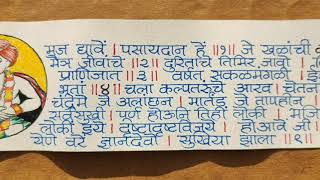 मज द्यावें । पसायदान हें ॥१॥ जे खळांची
मैत्र जीवांचें ॥२॥ दुरिताचें तिमिर जावो ।
प्राणिजात ॥३॥ वर्षत सकळमंगळी ।
भूतां ॥४॥ चला कल्पतरूंचे आरव । चेतना
चंद्रमे जे अलांछन । मार्तंड जे तापहीन ।
सर्वसुखी । पूर्ण होऊनि तिहीं लोकीं ।
लोकीं इयें । दृष्टादृष्टविजयें । होआवें जी ।
येणें वरें ज्ञानदेवो । सुखिया झाला ॥९॥